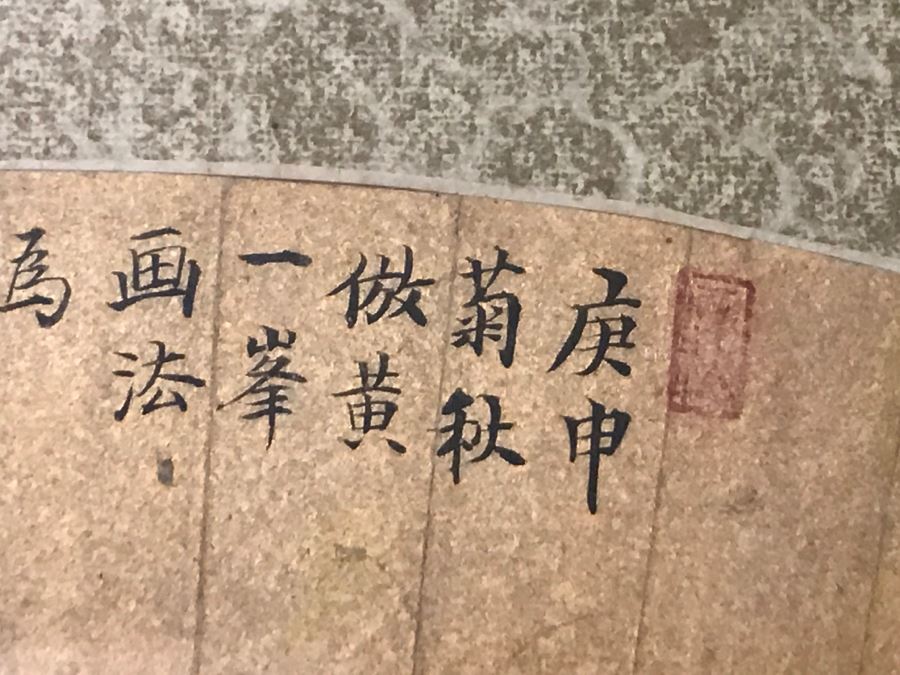 庚申
菊秋
倣黄
一峯
画法
為